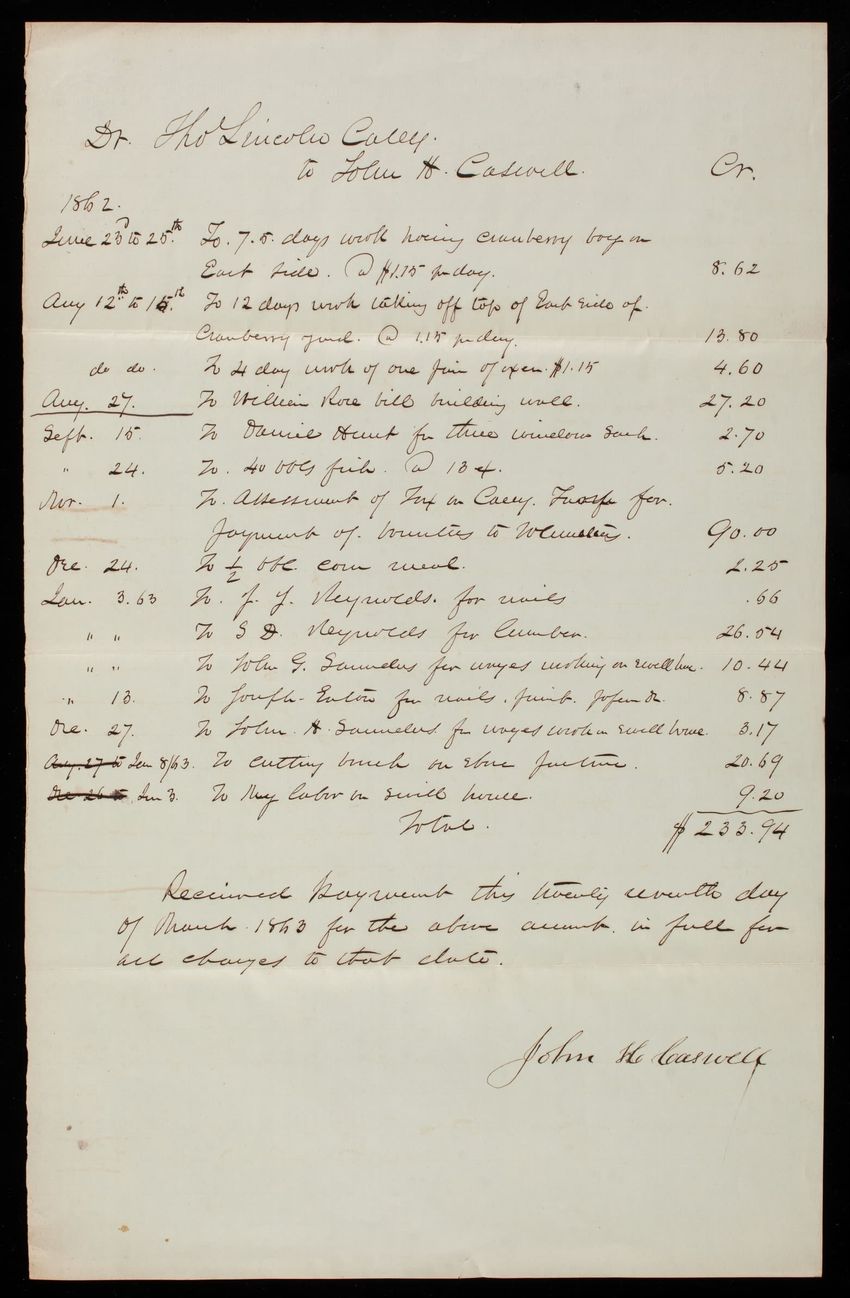 Dr. Tho<sup>s</sup> Lincoln Casey.
to John H. Caswell. Cr.
1862.
June 23<sup>d</sup> to 25<sup>th</sup>. To. 7.5. days work hoeing cranberry bog on
East side. @ $1.15 pr day. 8.62
Aug 12<sup>th</sup> to 15.<sup>th</sup> To 12 days work taking off top of East side of.
Cranberry yard. @ 1.15 pr day. 13.80
do do. To 4 day work of one pair of oxen. $1.15 4.60
Aug. 27. To William Rose bill building wall. 27.20
Sept. 15. To Daniel Hunt for three window sash. 2.70
" 24. To. 40 bbls fish. @ 13 ¢. 5.20
Nov. 1. To. Assessment of Tax on Casey. for.
payment of. bounties to Volunteers. 90.00
Dec. 24. To 1/2 bbl. corn meal. 2.25
Jan. 3.63 To. J. Y. Reynolds. for nails .66
" " To S D. Reynolds for lumber. 26.54
" " To John G. Saunders for wages working on swill house. 10.44
" 13. To Joseph. Eaton for nails. paint. 8.87
Dec. 27. To John. H. Saunders for wages work on swill house. 3.17
Aug. 27 to Jan 8/63. To cutting brush on pasture. 20.69
Dec 26 to Jan 3. To My labor on swill house. 9.20
Total. $ 233.94
Received Payment this twenty seventh day
of March. 1863 for the above amount. in full for
all charges to that date.
John H Caswell